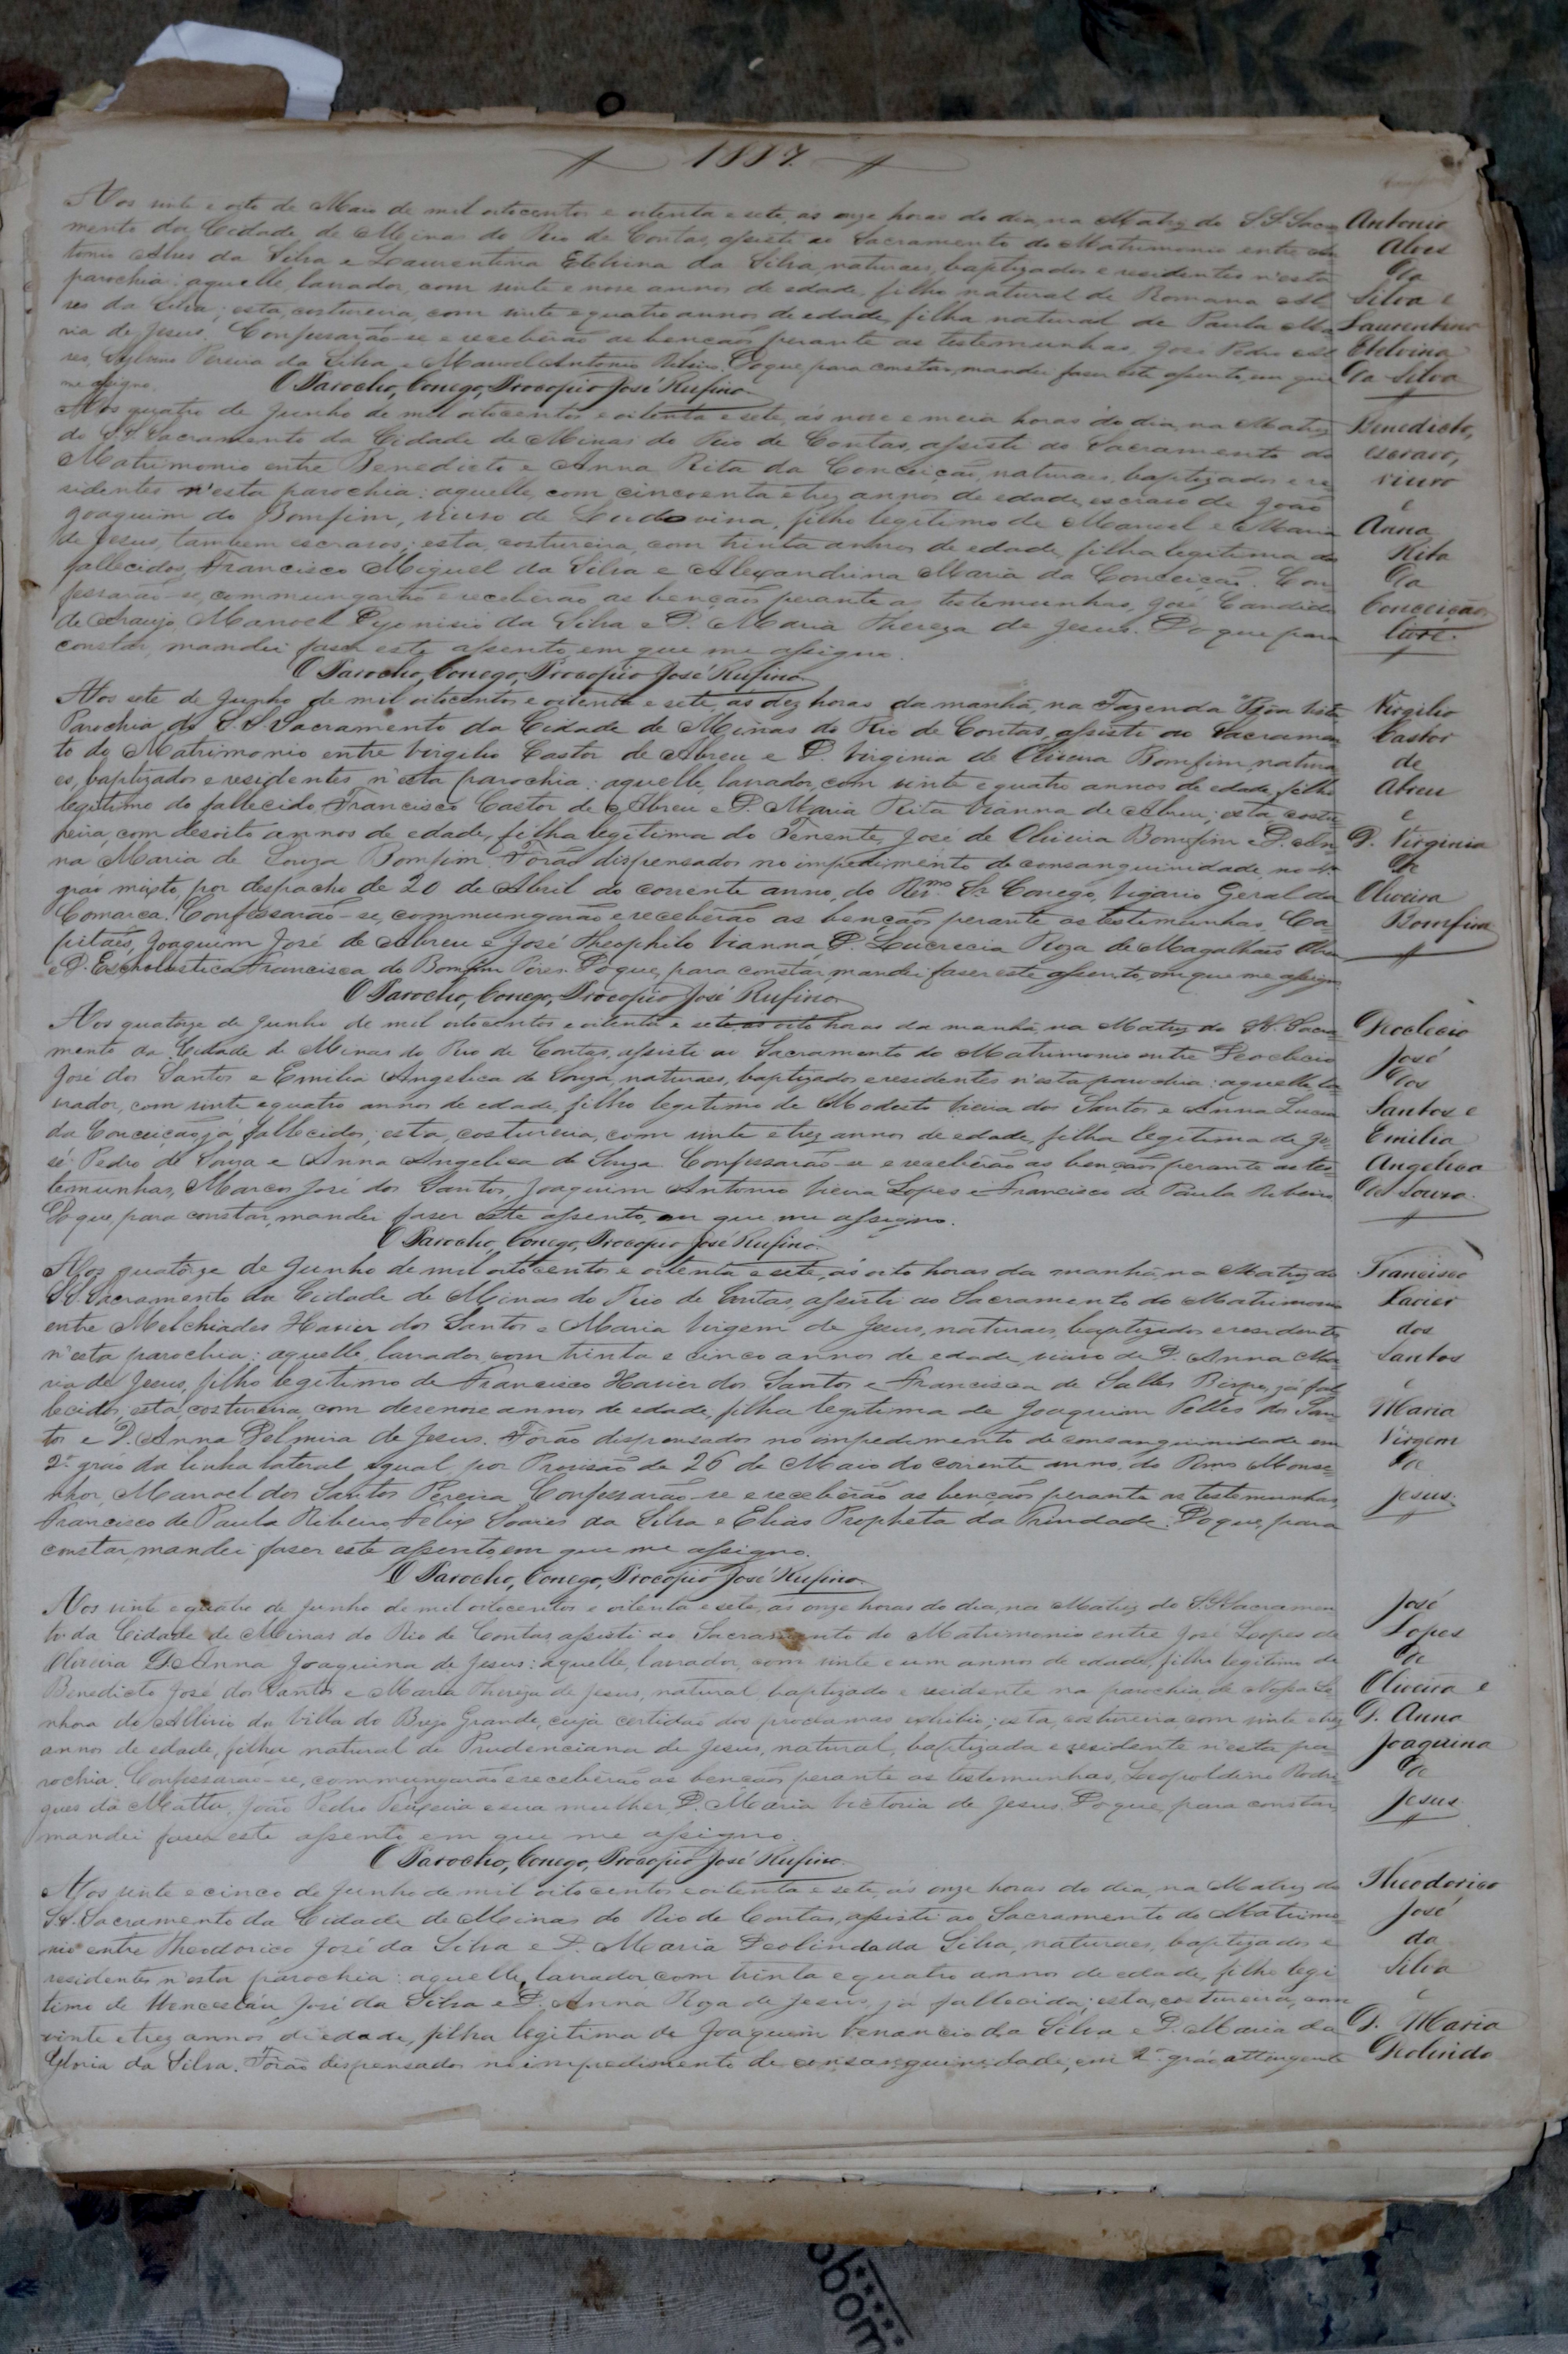 1887.
Aos vinte e oito de Maio de mil oitocentos e oitenta e sete, ás onze horas do dia, na Matriz do S.S. Sacra-
mento da Cidade de Minas do Rio de Contas, assisti ao Sacramento do Matrimonio entre An-
tonio Alves da Silva e Laurentina Etelvina da Silva, naturaes, baptizados e residentes n'esta
parochia: aquelle, lavrador, com vinte e nove annos de edade, filho natural de Romana Al-
ves da Silva; esta, costureira, com vinte e quatro annos de edade, filha natural de Paula Ma-
ria de Jesus. Confessarão-se e receberão as bençãos perante as testemunhas, José Pedro Al-
ves, Pereira da Silva e Manoel Antonio Ribeiro. Do que, para constar, mandei faser este assento, em que
me assigno.
O Parocho, Conego, Procopio José Rufino.
Antonio
Alves
da
Silva e
Laurentina
Etelvina
da Silva
Aos quatro de Junho de mil oitocentos e oitenta e sete, ás nove e meia horas do dia, na Matriz
do S.S. Sacramento da Cidade de Minas do Rio de Contas, assisti ao Sacramento do
Matrimonio entre Benedicto e Anna Rita da Conceição, naturaes, baptizados e re-
sidentes n'esta parochia: aquelle, com cincoenta e trez annos de edade, escravo de João
Joaquim do Bomfim, viuvo de Ludovina, filho legitimo de Manoel e Maria
de Jesus, tambem escravos; esta, costureira, com trinta annos de edade, filha legitima dos
fallecidos, Francisco Miguel da Silva e Alexandrina Maria da Conceição. Con-
fessarão-se, commungarão e receberão as bençãos perante as testemunhas, José Candido
de Araujo, Manoel Dyonisio da Silva e D. Maria Thereza de Jesus. Do que para
constar, mandei faser este assento, em que me assigno.
O Parocho, Conego, Procopio José Rufino.
Benedicto,
escravo,
viuvo
e
Anna
Rita
da
Conceição
livre.
Aos sete de Junho de mil oitocentos e oitenta e sete, ás dez horas da manhã, na Fazenda "Boa Vista,
Parochia do S.S. Sacramento da Cidade de Minas do Rio de Contas, assisti ao Sacramen-
to do Matrimonio entre Virgilio Castor de Abreu e D. Virginia de Oliveira Bomfim, natura-
es, baptizados e residentes n'esta parochia: aquelle, lavrador, com vinte e quatro annos de edade, filho
legitimo do fallecido, Francisco Castor de Abreu e D. Maria Rita Vianna de Abreu; esta, costu-
reira, com desoito annos de edade, filha legitima do Tenente, José de Oliveira Bomfim e D. An-
na Maria de Souza Bomfim. Forão dispensados no impedimento de consanguinidade no
grao mixto, por despacho de 20 de Abril do corrente anno, do Rev.mo Sr. Conego, Vigario Geral da
Comarca. Confessarão-se, commungarão e receberão as bençãos perante as testemunhas, Ca-
pitaes, Joaquim José de Abreu e José Theophilo Vianna, D. Lucrecia Roza de Magalhães
e D. Escholastica Francisca do Bomfim Pires. Do que, para constar, mandei faser este assento, em que me assigno
O Parocho, Conego, Procopio José Rufino.
Virgilio
Castor
de
Abreu
e
D. Virginia
de
Oliveira
Bomfim
Aos quatorze de Junho de mil oitocentos e oitenta e sete, ás oito horas da manhã, na Matriz do SS. Sacra-
mento da Cidade de Minas do Rio de Contas, assisti ao Sacramento do Matrimonio entre Deoclecio
José dos Santos e Emilia Angelica de Souza, naturaes, baptizados e residentes n'esta parochia: aquelle, la-
vrador, com vinte e quatro annos de edade, filho legitimo de Modesto Vieira dos Santos e Anna Lucia
da Conceição, já fallecidos; esta, costureira, com vinte e trez annos de edade, filha legitima de Jo-
sé Pedro de Souza e Anna Angelica de Souza. Confessarão-se e receberão as bençãos perante as tes-
temunhas, Marcos José dos Santos, Joaquim Antonio Vieira Lopes e Francisco de Paula Ribeiro.
Do que, para constar, mandei faser este assento, em que me assigno.
O Parocho, Conego, Procopio José Rufino.
Deoclecio
José
dos
Santos e
Emilia
Angelica
de Souza.
Aos quatorze de Junho de mil oitocentos e oitenta e sete, ás oito horas da manhã, na Matriz do
SS. Sacramento da Cidade de Minas do Rio de Contas, assisti ao Sacramento do Matrimonio
entre Melchiades Xavier dos Santos e Maria Virgem de Jesus, naturaes, baptizados e residentes
n'esta parochia: aquelle, lavrador, com trinta e cinco annos de edade, viuvo de D. Anna Ma-
ria de Jesus, filho legitimo de Francisco Xavier dos Santos e Francisca de Salles Bispo, já fal-
lecidos; esta, costureira, com desenove annos de edade, filha legitima de Joaquim Telles dos San-
tos e D. Anna Delmira de Jesus. Forão dispensados no impedimento de consanguinidade em
2º grao da linha lateral igual, por Provisão de 26 de Maio do corrente anno, do Rmo Monse-
nhor, Manoel dos Santos Pereira. Confessarão-se e receberão as bençãos perante as testemunhas,
Francisco de Paula Ribeiro, Felix Soares da Silva e Elias Propheta da Trindade. Do que, para
constar, mandei faser este assento, em que me assigno.
O Parocho, Conego, Procopio José Rufino.
Francisco
Xavier
dos
Santos
e
Maria
Virgem
de
Jesus.
Aos vinte e quatro de Junho de mil oitocentos e oitenta e sete, ás onze horas do dia, na Matriz do S.S. Sacramen-
to da Cidade de Minas do Rio de Contas, assisti ao Sacramento do Matrimonio entre José Lopes de
Oliveira e D. Anna Joaquina de Jesus: aquelle, lavrador, com vinte e um annos de edade, filho legitimo de
Benedicto José dos Santos e Maria Thereza de Jesus, natural, baptizado e residente na parochia de Nossa Se-
nhora do Allivio da Villa do Brejo Grande, cuja certidão dos proclamas exhibio; esta, costureira, com vinte e trez
annos de edade, filha natural de Prudenciana de Jesus, natural, baptizada e residente n'esta pa-
rochia. Confessarão-se, commungarão e receberão as bençãos perante as testemunhas, Leopoldino Rodri-
gues da Matta, João Pedro Teixeira e sua mulher, D. Maria Victoria de Jesus. Do que, para constar,
mandei faser este assento, em que me assigno.
O Parocho, Conego, Procopio José Rufino.
José
Lopes
de
Oliveira e
D. Anna
Joaquina
de
Jesus
Aos vinte e cinco de Junho de mil oitocentos e oitenta e sete, ás onze horas do dia, na Matriz do
SS. Sacramento da Cidade de Minas do Rio de Contas, assisti ao Sacramento do Matrimo-
nio entre Theodorico José da Silva e D. Maria Deolinda da Silva, naturaes, baptizados e
residentes n'esta parochia: aquelle, lavrador, com trinta e quatro annos de edade, filho legi-
timo de Wencesláu José da Silva e D. Anna Roza de Jesus, já fallecida; esta, costureira, com
vinte e trez annos de edade, filha legitima de Joaquim Venancio da Silva e D. Maria da
Gloria da Silva. Forão dispensados no impedimento de consanguinidade, em 2º grão attingente
Theodorico
José
da
Silva
e
D. Maria
Deolinda